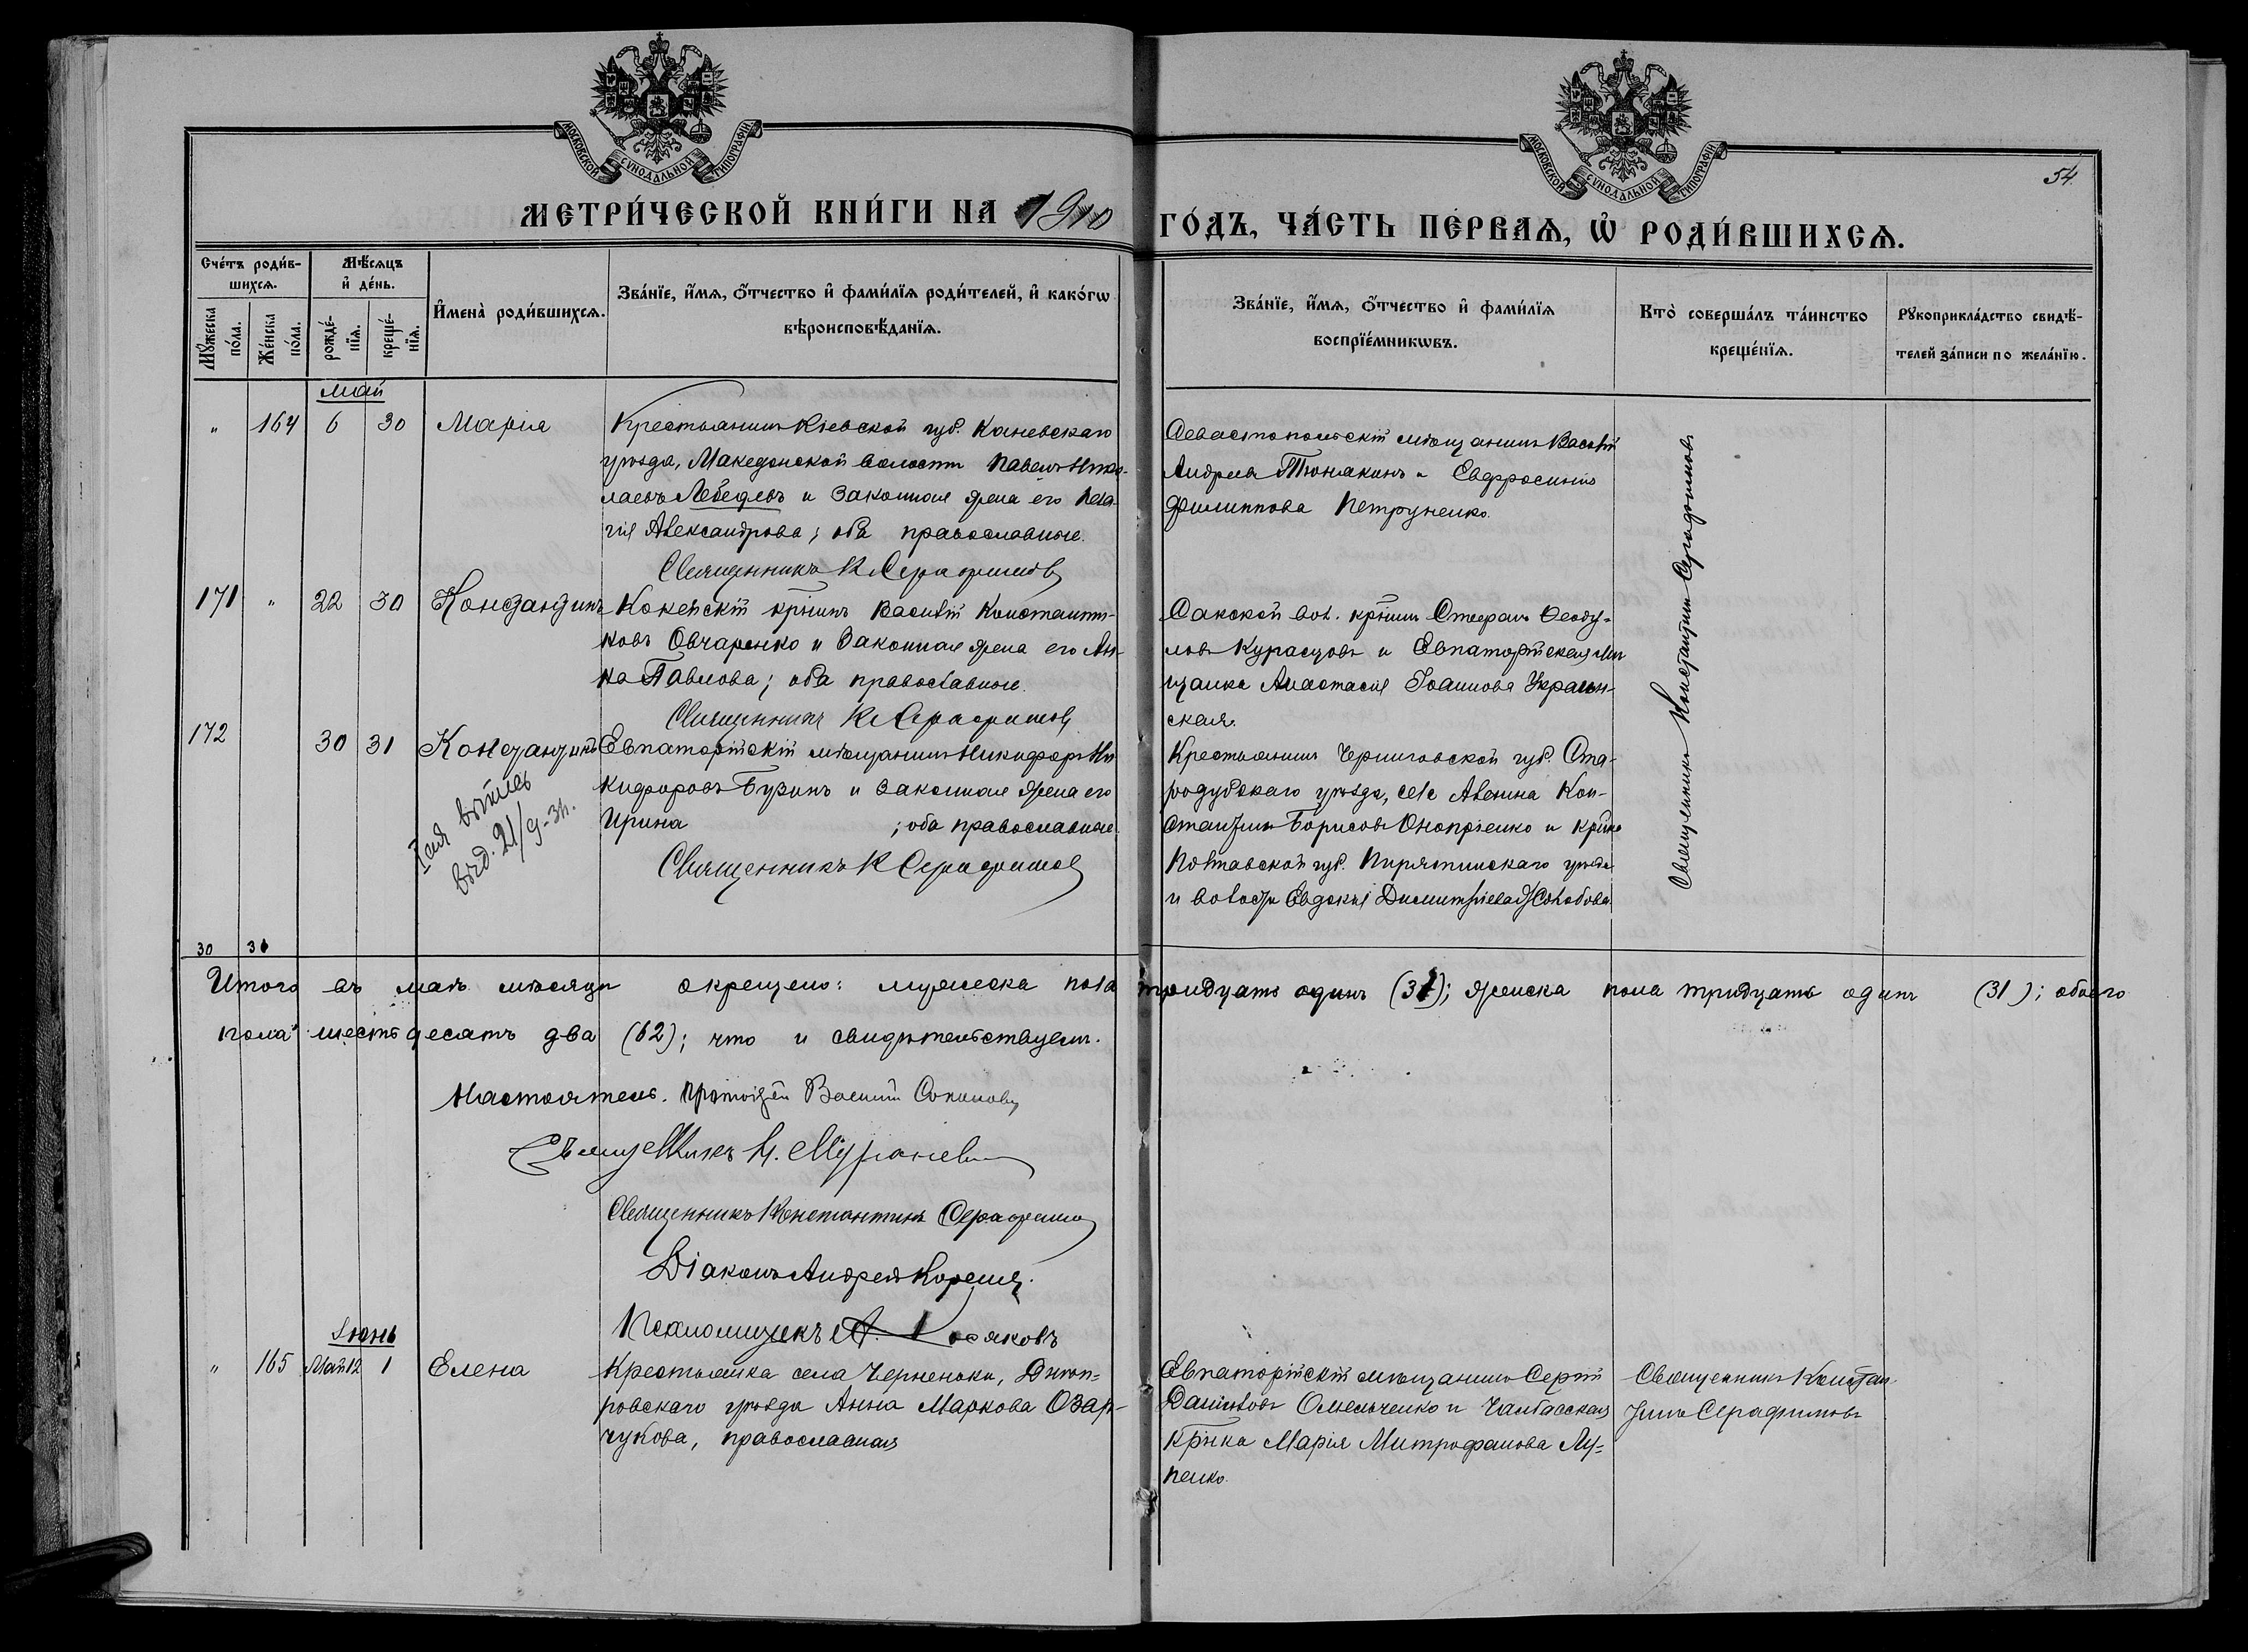 МОСКОВСКОЙ СѴНОДАЛЬНОЙ ТИПОГРАФІИ
МОСКОВСКОЙ СѴНОДАЛЬНОЙ ТИПОГРАФІИ
54.
МЕТРИ́ЧЕСКОЙ КНИ́ГИ НА 1910
ГО́ДЪ, ЧА́СТЬ ПЕ́РВАѦ, Ѡ҆ РОДИ́ВШИХСѦ.
Сче́тъ роди́в-
шихсѧ.
Мꙋ́жеска по́ла.
Же́нска по́ла.
Мѣ́сѧцъ
и҆ де́нь.
рожде́-
нїѧ.
креще́-
нїѧ.
И҆мена̀ роди́вшихсѧ.
Зва́нїе, и҆́мѧ, ѻ҆́тчество и҆ фами́лїѧ роди́телей, и҆ како́гѡ
вѣроисповѣ́данїѧ.
Зва́нїе, и҆́мѧ, ѻ҆́тчество и҆ фами́лїѧ
воспрїе́мникѡвъ.
Кто̀ соверша́лъ та́инство
креще́нїѧ.
Рꙋкоприкла́дство свидѣ́-
телей за́писи по жела́нїю.
Май
" 164 6 30 Марія
Крестьянинъ Кіевской губ. Каневскаго
уѣзда, Македонской волости Павелъ Нико-
лаевъ Лебедевъ и законная жена его Пела-
гія Александрова; оба православные.
Священникъ К Серафимовъ
Севастопольскій мѣщанинъ Василій
Андреевъ Тюнякинъ и Евфросинія
Филиппова Петруненко.
Священникъ Константинъ Серафимовъ
171 " 22 30 Константинъ
кр̃нинъ Василій Константи-
новъ Овчаренко и законная жена его Ан-
на Павлова; оба православные.
Священникъ К Серафимовъ
Сакской вол. кр̃нинъ Стефанъ Ѳеоду-
ловъ Курасцовъ и Евпаторійская мѣ
щанка Анастасія Іоаннова Украин-
ская.
172 30 31 Константинъ
Евпаторійскій мѣщанинъ Никифоръ Ни
кифоровъ Бузинъ и законная жена его
Ирина ; оба православные.
Священникъ К Серафимовъ
выпись
выд. 21/9-
Крестьянинъ Черниговской губ. Ста-
родубскаго уѣзда, села Авенина Кон-
стантинъ Борисовъ Оноприенко и кр̃нка
Полтавской губ. Пирятинскаго уѣзда
и волости Евдокія Димитріева
30 31
Итого въ маѣ мѣсяцѣ окрещено: мужеска пола тридцать одинъ (31); женска пола тридцать одинъ (31); обоего
пола шестьдесятъ два (62); что и свидѣтельствуемъ.
Настоятель. Протоіерей Василій Сокиновъ
Священникъ
Священникъ Константинъ Серафимовъ
Діаконъ Андрей
Псаломщикъ А.
Іюнь
" 165 Май 12 1 Елена
Крестьянка села Черненьки, Днѣп-
ровскаго уѣзда Анна Маркова Озар-
чукова, православная
Евпаторійскій мѣщанинъ Сергій
Даниловъ Омельченко и Чалбасская
кр̃нка Марія Митрофанова Лу-
ценко.
Священникъ Констан
тинъ Серафимовъ